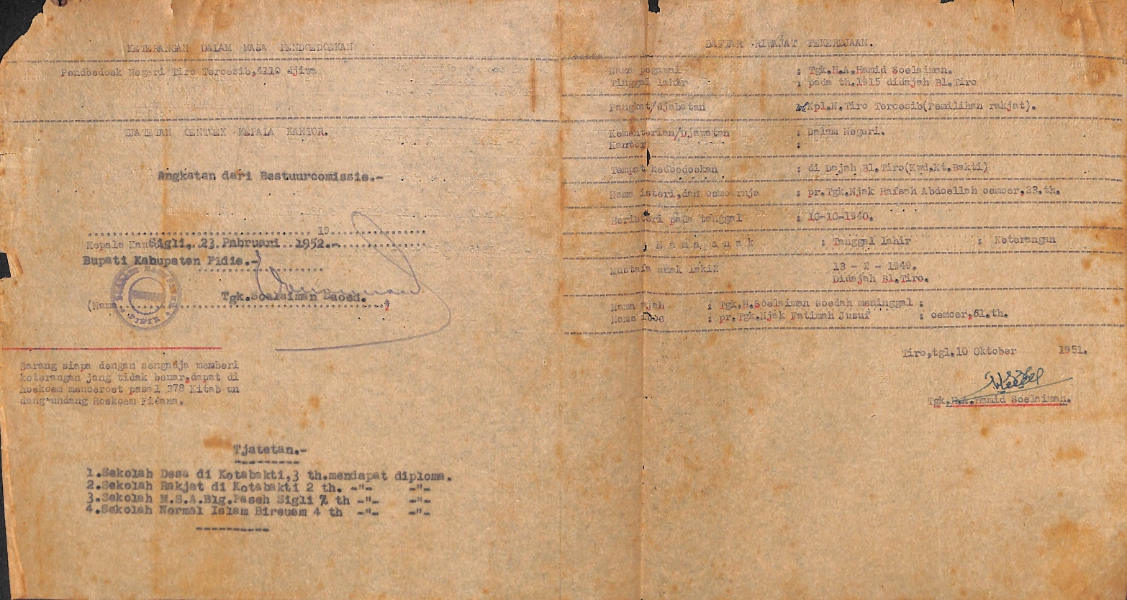 KETERANGAN DALAM MASA PENDOEDOEKAN
Pendoedoek Negeri Tiro Tercesib, 4110 djiwa
TJATETAN OENTOEK KEPALA KANTOR.
Angkatan dari Bestuurcomissie.-
19
Kepala Kan Sigli, 23 Pabruari 1952.-
Bupati Kabupaten Pidie.-
(Nama Tgk.Soelaiman Daoed.
Barang siapa dengan sengadja memberi
keterangan jang tidak benar,dapat di
hoekoem menoeroet pasal 278 Kitab un
dang'undang Hoekoem Pidana.
Tjatetan.-
1.Sekolah Desa di Kotabakti,3 th.mendapat diploma.
2.Sekolah Rakjat di Kotabakti 2 th. -"- -"-
3.Sekolah M.S.A.Blg.Paseh Sigli 7 th -"- -"-
4.Sekolah Normal Islam Bireuen 4 th -"- -"-
DAFTAR RIWAJAT PEKERDJAAN.
Nama pegawai : Tgk.H.A.Hamid Soelaiman.
Tinggal lahir : pada th.1915 didajah Bl.Tiro
Pangkat/djabatan : Kpl.N.Tiro Tercesib(Pemilihan rakjat).
Kementerian/Djawatan : Dalam Negeri.
Kantor :
Tempat kedoedoekan : di Dajah Bl.Tiro(Kwd.Kt.Bakti)
Nama isteri,dan oemoernja : pr.Tgk.Njak Hafsah Abdoellah oemoer,28.th.
Beristeri pada tanggal : 10-10-1940.
N a m a, a n a k : Tanggal lahir : Keterangan
Mustafa anak laki2 13 - 2 - 1949.
Didajah Bl.Tiro.
Nama ajah : Tgk.H.Soelaiman Soedah meninggal :
Nama iboe : pr.Tgk.Njak Fatimah Jusuf : oemoer,61.th.
Tiro,tgl.10 Oktober 1951.
Tgk.H.A.Hamid Soelaiman.